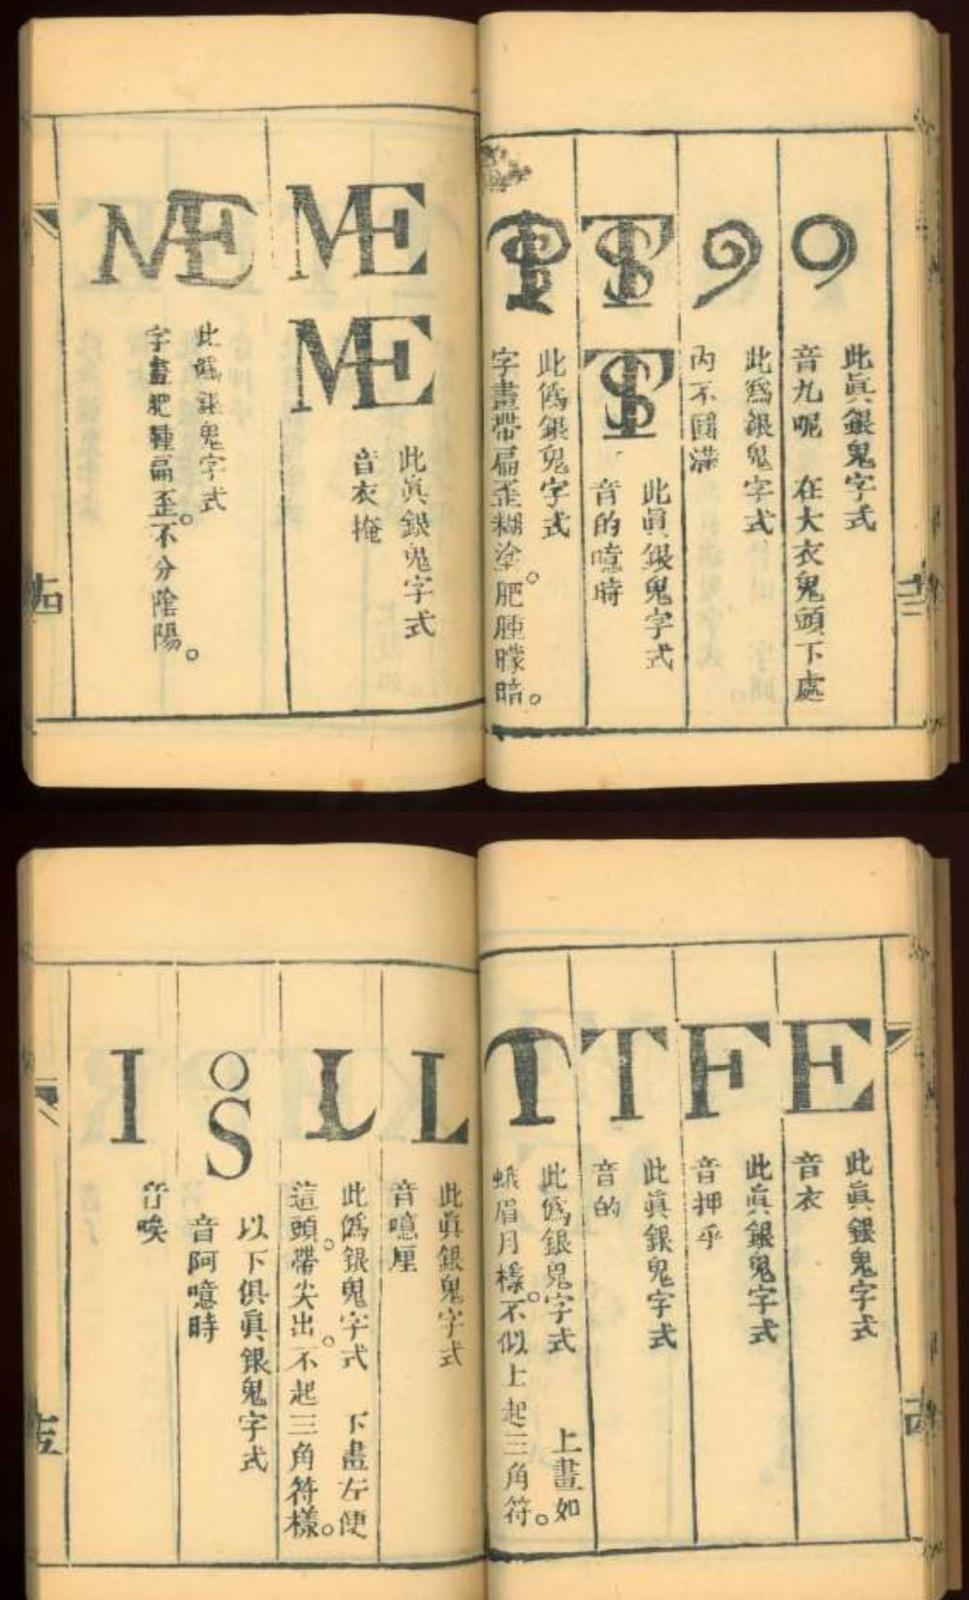 9
此眞銀鬼字式
音九呢　在大衣鬼頭下處
9
此僞銀鬼字式
內不圓滿
TS
TS
此眞銀鬼字式
音的噫時
TS
此僞銀鬼字式
字畫帶扁歪糊塗。肥腫朦暗。
ME
ME
此眞銀鬼字式
音衣掩
ME
此僞銀鬼字式
字畫肥腫扁歪。不分陰陽。
十四
E
此眞銀鬼字式
音衣
F
此眞銀鬼字式
音押乎
T
此眞銀鬼字式
音的
T
此僞銀鬼字式　上畫如
蛾眉月樣。不似上起三角符。
L
此眞銀鬼字式
音噫厘
L
此僞銀鬼字式　下畫左便
這頭。帶尖出。不起三角符樣。
o
S
以下俱眞銀鬼字式
音阿噫時
I
音唉
十五